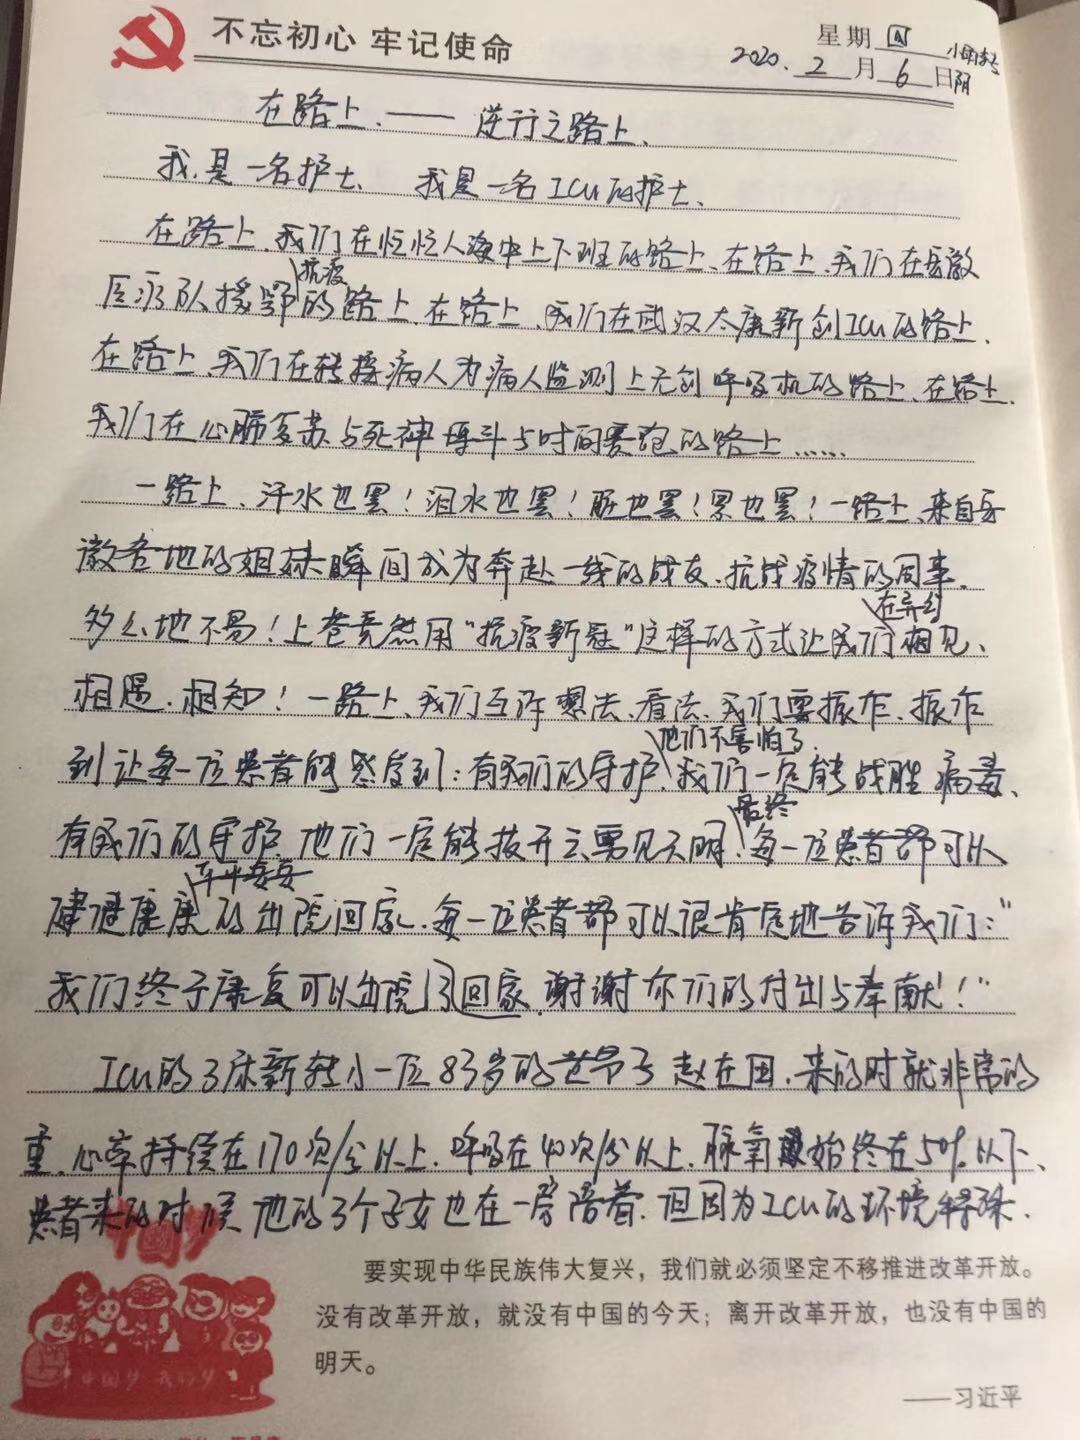 不忘初心 牢记使命
星期四
2020.2月6日阴
在路上、——逆行之路上、
我是一名护士、 我是一名ICU的护士、
在路上、我们在忙忙人海中上下班的路上、在路上、我们在安徽
医疗队援鄂抗疫的路上、在路上、我们在武汉太康新创ICU的路上、
在路上、我们在转接病人为病人监测上无创呼吸机的路上、在路上、
我们在心肺复苏与死神搏斗与时间赛跑的路上……
一路上、汗水也罢!泪水也罢!脏也罢!累也罢!一路上、来自安
徽各地的姐妹瞬间成为奔赴一线的战友、抗战疫情的同事。
多么地不易!上苍竟然用“抗疫新冠”这样的方式让我们在异乡相见、
相遇、相知!一路上、我们互诉想法、看法、我们要振作、振作
到让每一位患者能感受到:有我们的守护、他们不害怕了、我们一定能战胜病毒、
有我们的守护、他们一定能拨开云雾见天明、最终每一位患者都可以
健健康康平平安安的出院回家、每一位患者都可以很肯定地告诉我们:“
我们终于康复可以出院了回家、谢谢你们的付出与奉献!”
ICU的3床新转一位83岁的老爷子赵在田、来的时就非常的
重、心率持续在170次/分以上、呼吸在40次/分以上、脉氧始终在50%以下、
患者来的时候他的3个子女也在一旁陪着、但因为ICU的环境特殊、
中国梦
中国梦 我的梦
要实现中华民族伟大复兴，我们就必须坚定不移推进改革开放。
没有改革开放，就没有中国的今天；离开改革开放，也没有中国的
明天。
——习近平